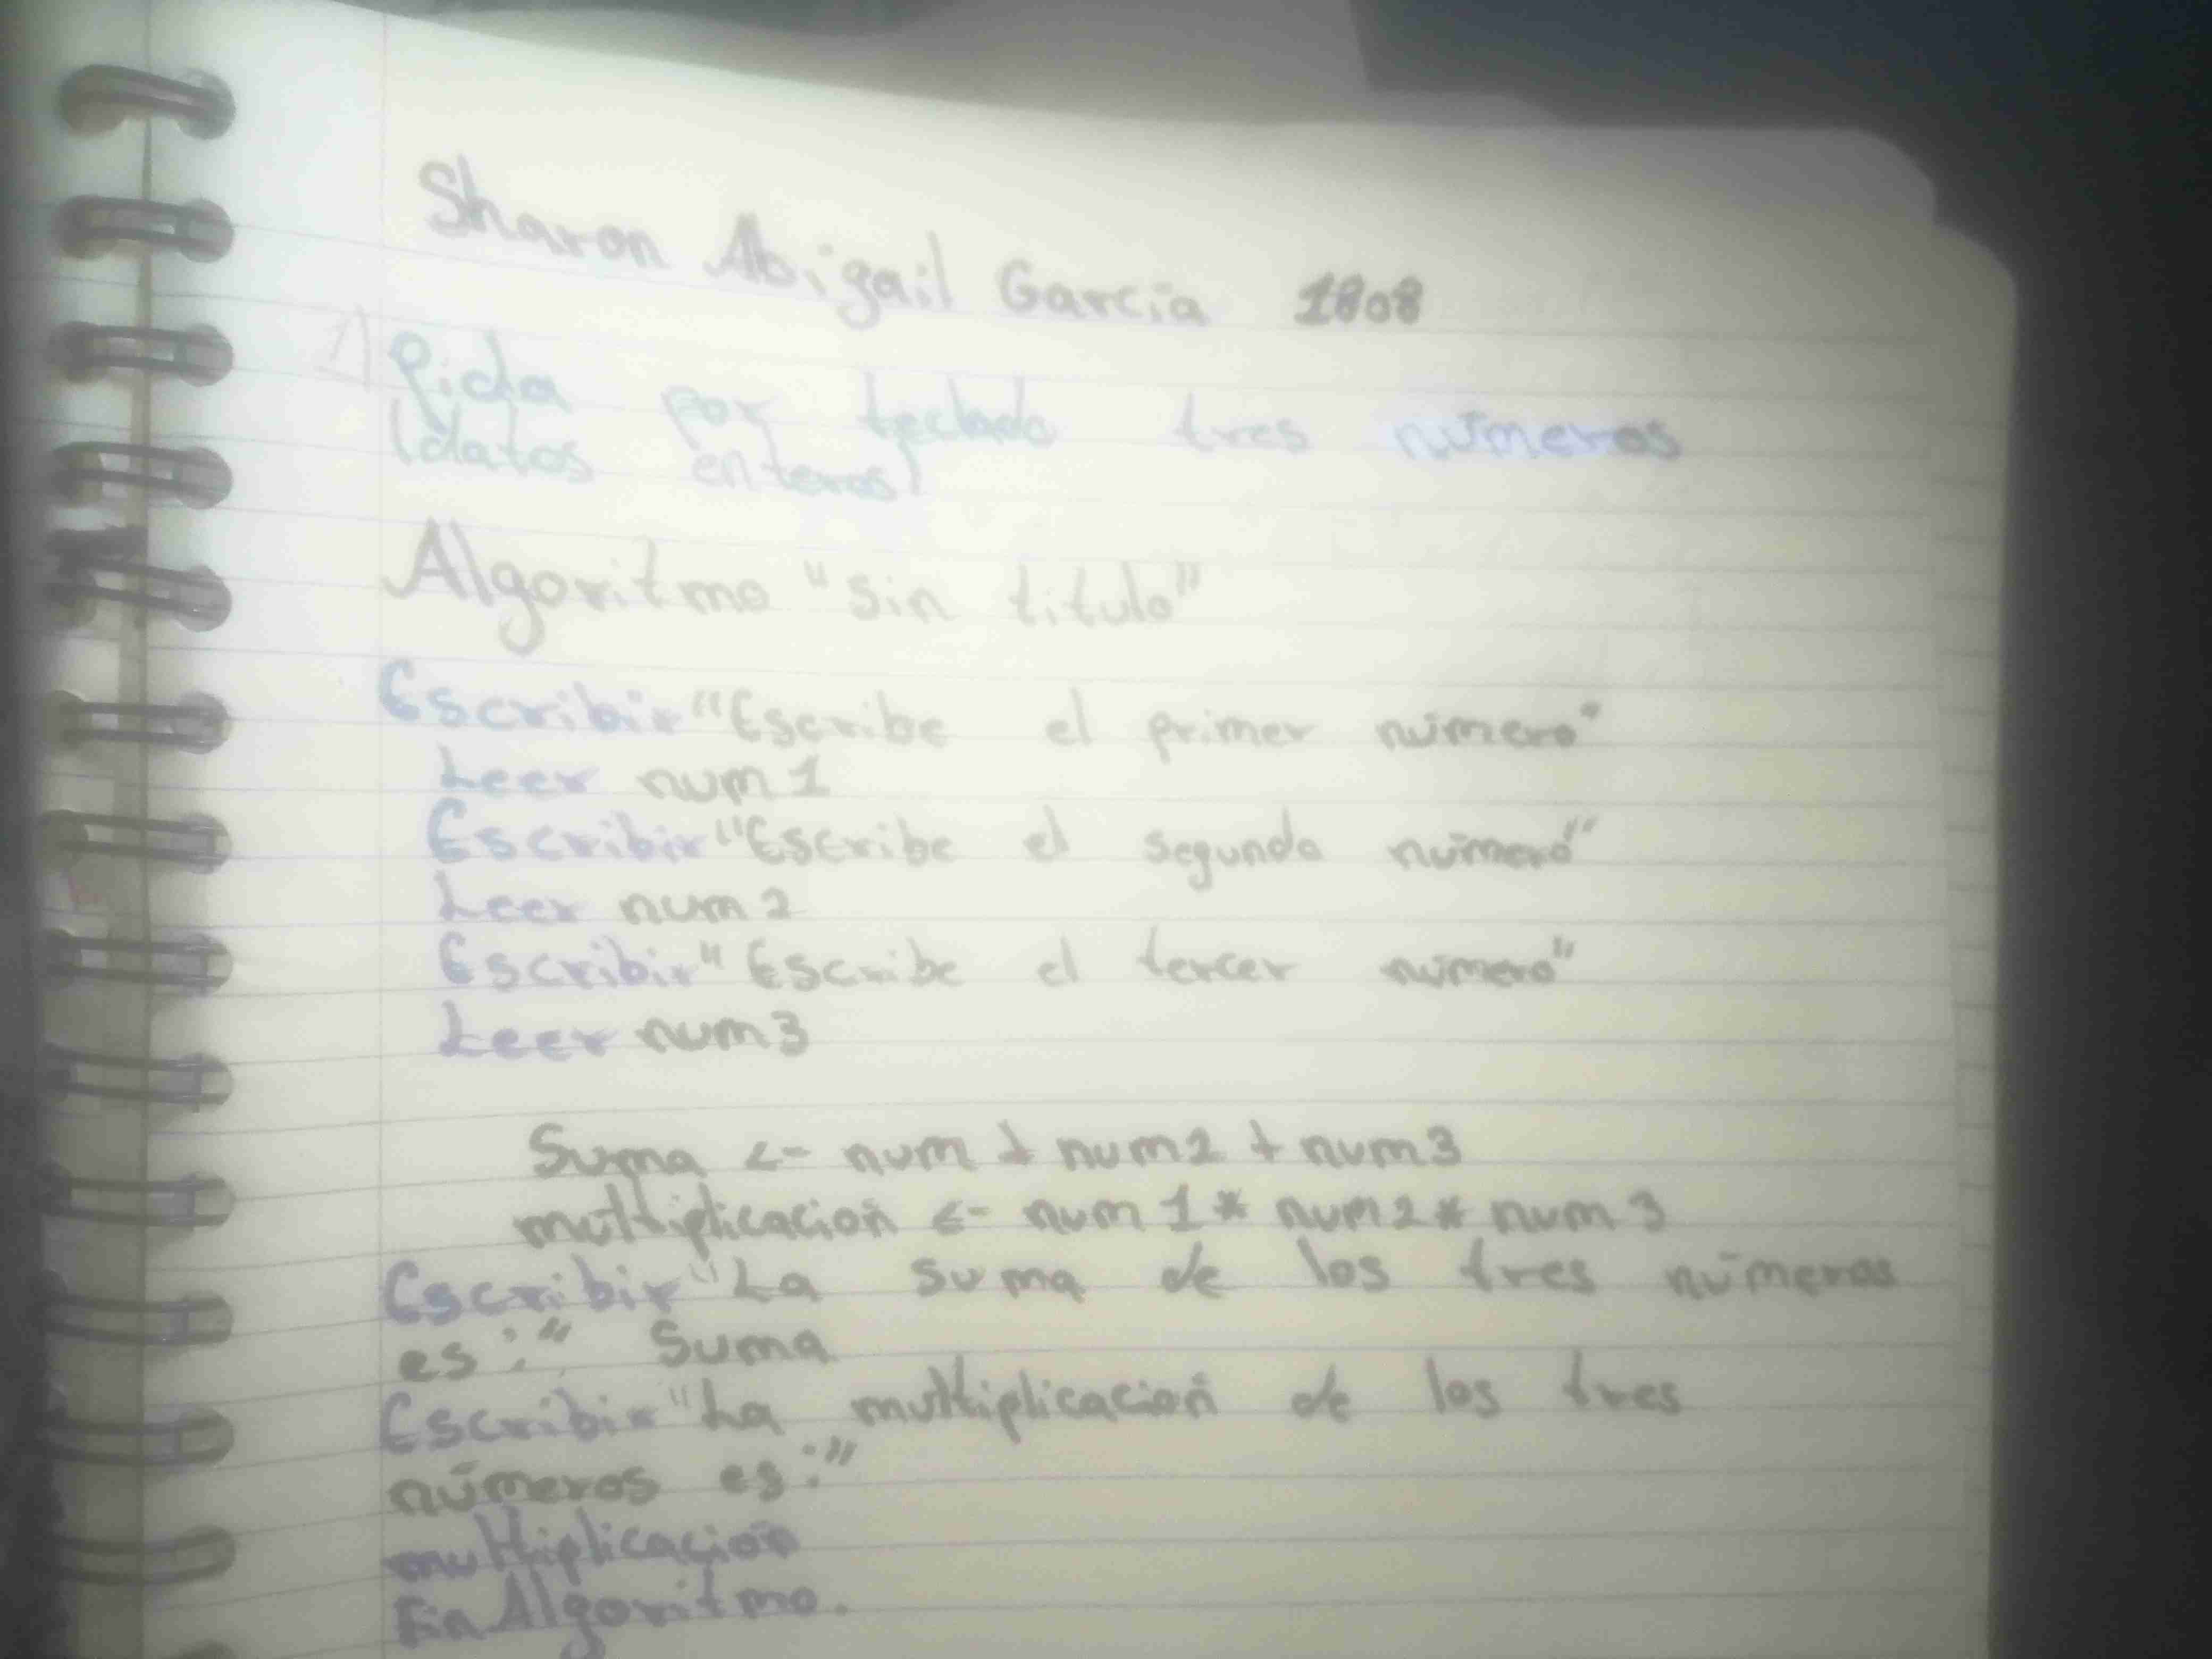 Sharon Abigail García 1808
1) Pida por teclado tres números
(datos enteros)
Algoritmo "Sin titulo"
Escribir "Escribe el primer número"
Leer num 1
Escribir "Escribe el segundo número"
Leer num 2
Escribir "Escribe el tercer número"
Leer num 3
Suma <- num + num 2 + num 3
multiplicación <- num 1 * num 2 * num 3
Escribir "La suma de los tres números
es:" Suma
Escribir "La multiplicación de los tres
números es:"
multiplicación
Fin Algoritmo.